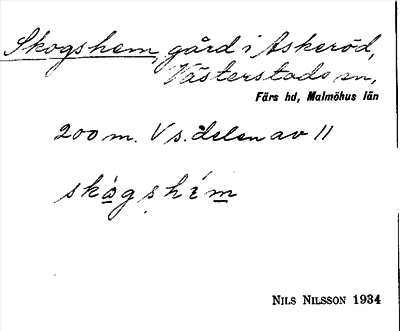 Skogshem, gård i Askeröd,
Västerstads sn,
Färs hd, Malmöhus län
200 m. V s. delen av 11
skågshém
NILS NILSSON 1934